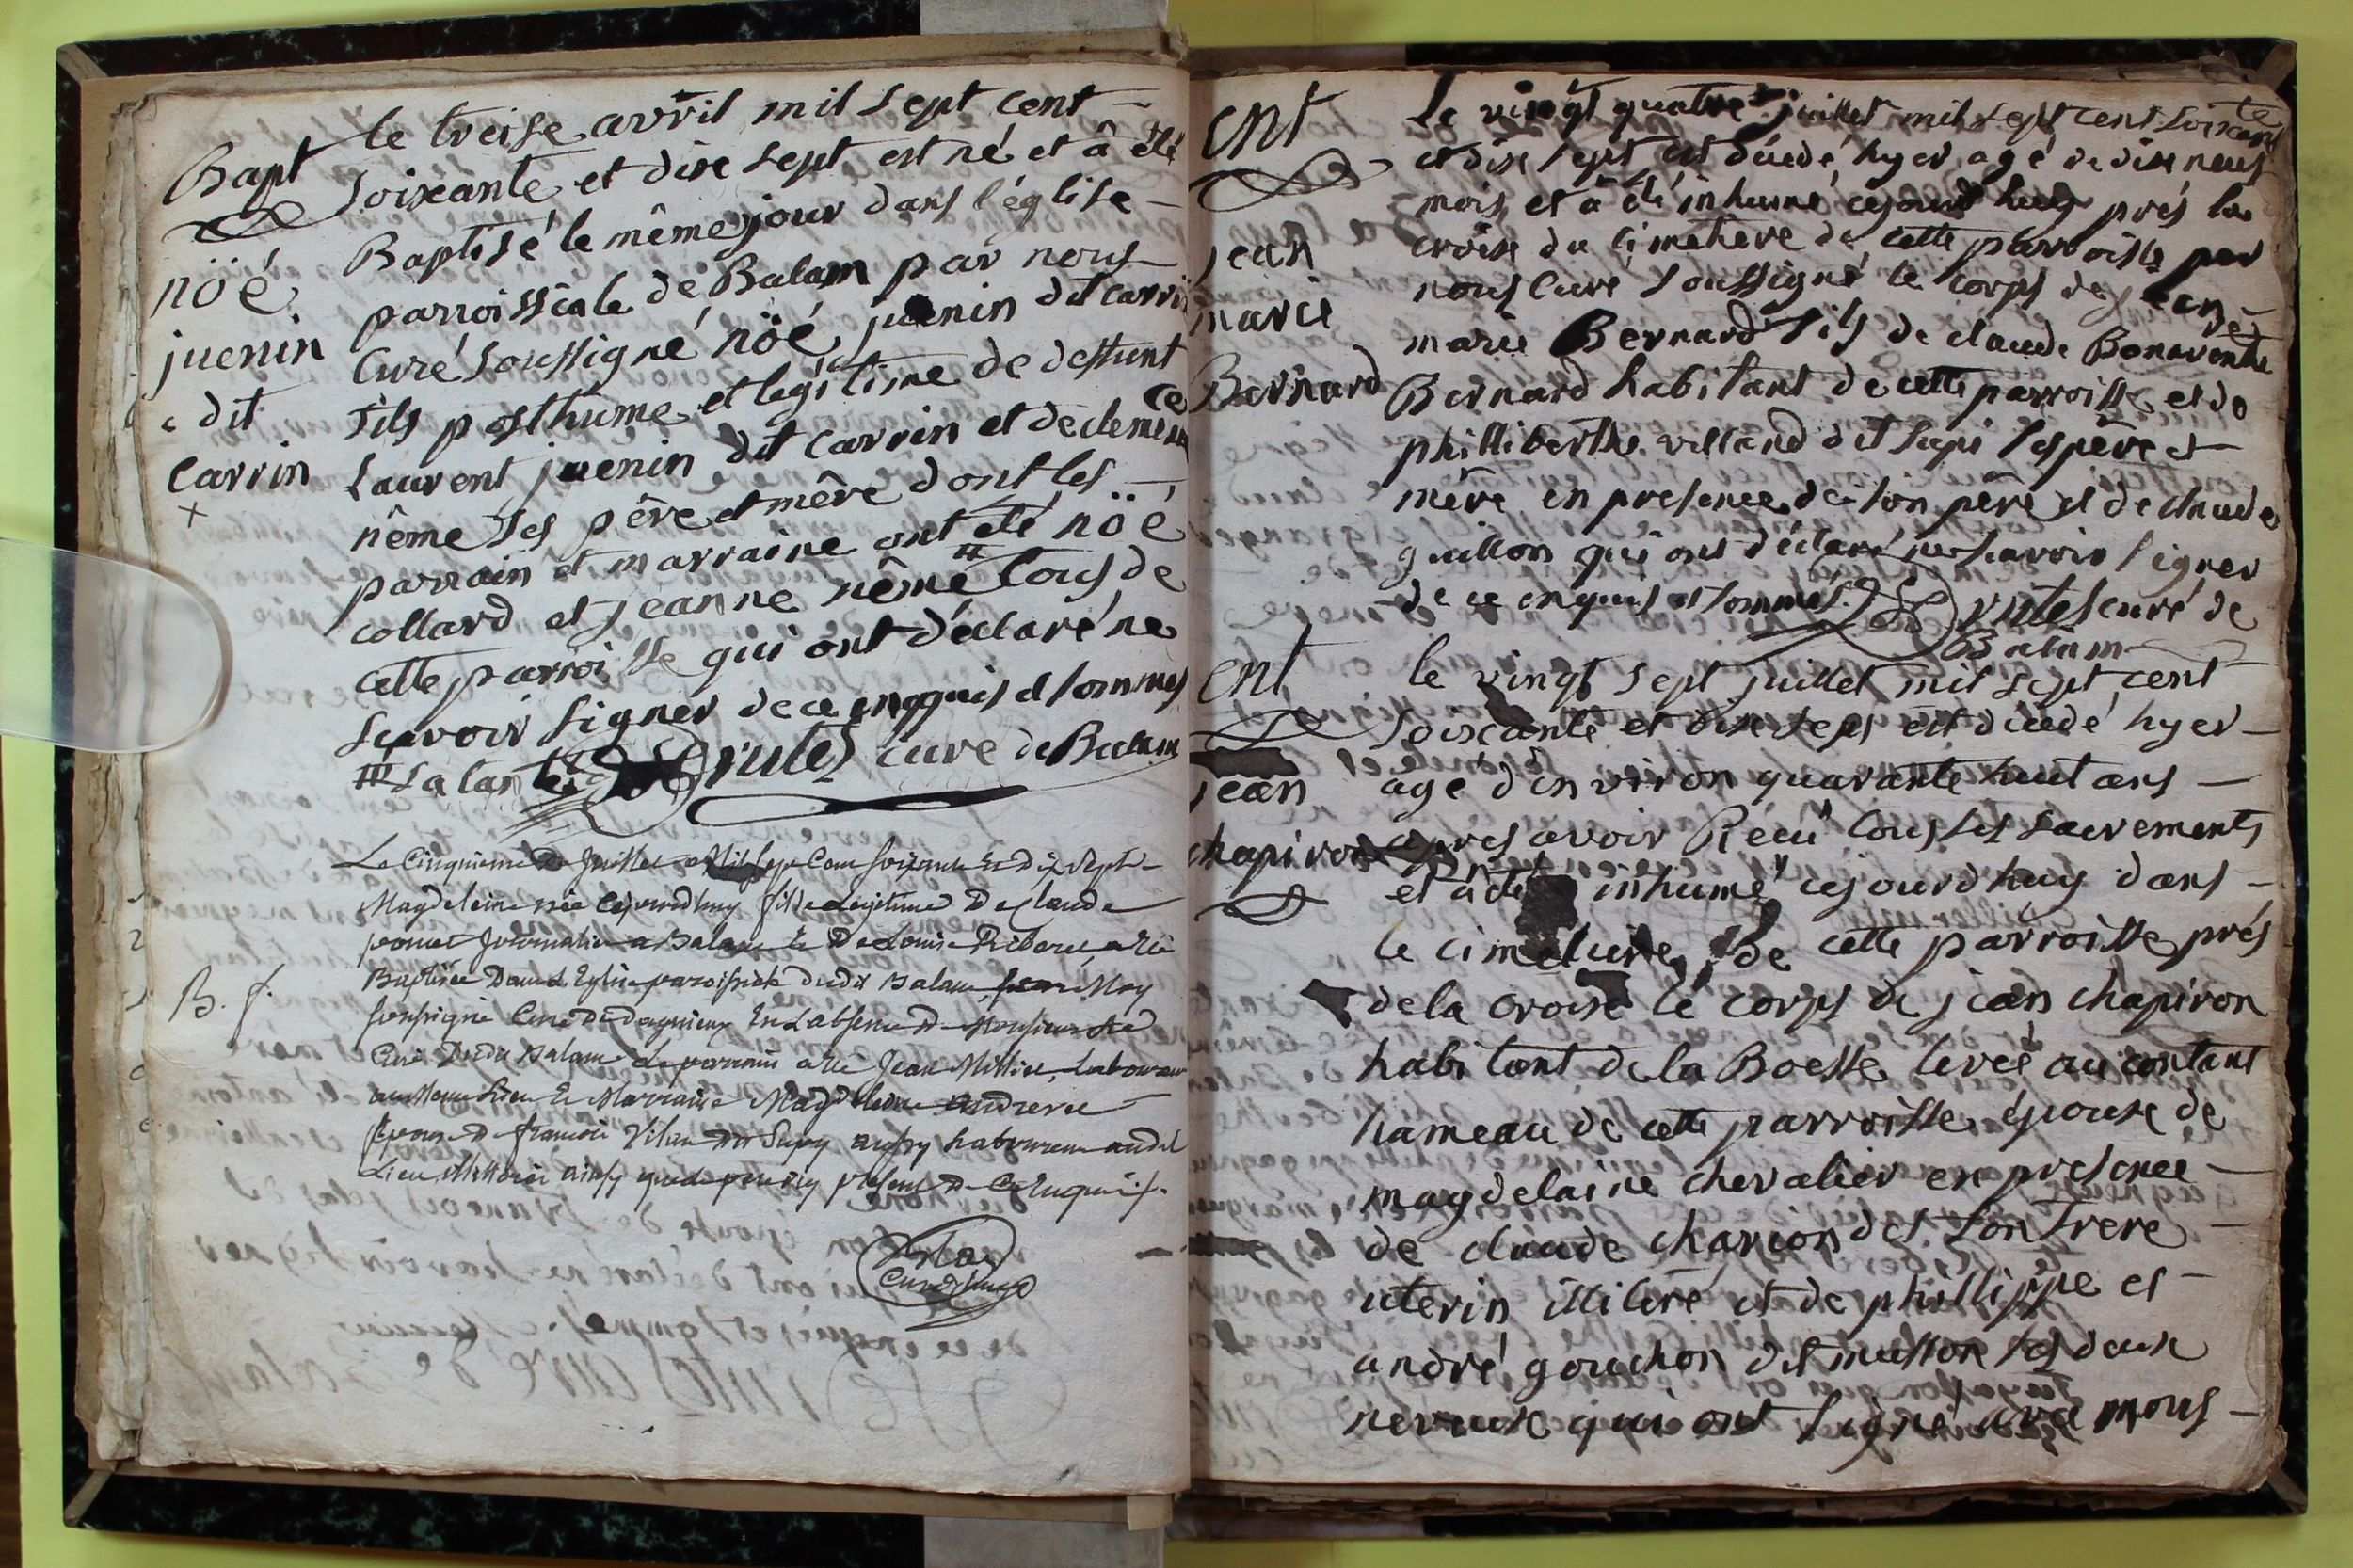 Bapt
nöé
juenin
dit
Carrin
le treise avvril mil sept cent
soixante et dixe sept est né et â été
Baptisé le même jour dans l'église
parroissiale de Balam par nous
Curé soussigné nöé juenin dit carrin
fils posthume et legitime de deffunt
Laurent juenin dit Carrin et de clemence
nême ses père et mère dont les
parrain et marraine ont été nöé
collard et jeanne nême tous de
cette parroisse qui ont déclaré ne
sçavoir signer de ce enqquis et sommés
curé de Balam
B. f.
Le Cinquieme De Juillet Mil Sept Cent soixante Et Dix Sept
Magdeleine née Cejourdhuy fille Legitime De Claude
journalier a Balam Et De Louise a Eté
Baptisée Dans L'Eglise paroissiale Dudit Balam par Moy
soussigné Curé De Dagnieux En L'absence De Monsieur
Curé Dudit Balam Le parrain a Eté Jean Laboureur
au Meme Lieu Et Marraine Magdeleine
Epouse De francois Vilan Dit Supy aussy Laboureur audit
Lieu ainsy que le present De Ce Enquis
ent
jean
marie
Bernard
Le vingt quatre juillet mil sept cent soixante
et dixe sept est décédé hyer agé de dixe neuf
mois et â été inhumé cejourdhuy près la
croixe du cimetiere de cette parroisse par
nous Curé soussigné le corps de jean
marie Bernard fils de claude Bonaventure
Bernard habitant de cette parroisse et de
philliberthe villand dit supi ses père et
mère en presence de son père et de claude
guillon qui ont déclaré ne sçavoir signer
de ce enquis et sommés
curé de
Balam
ent
jean
chapiron
le vingt sept juillet mil sept cent
soixante et dixe sept est décédé hyer
agé d'environ quarante huit ans
après avoir Reçu tous ses sacrements
et â été inhumé cejourdhuy dans
le cimetiere de cette parroisse près
de la croixe le corps de jean chapiron
habitant de la Boesse levée au contant
hameau de cette parroisse épouse de
magdelaine chevalier en presence
de claude charion dit son frere
uterin illiteré et de phillippe et
andré gouchon dit musson ses deux
neveux qui ont signé avec nous